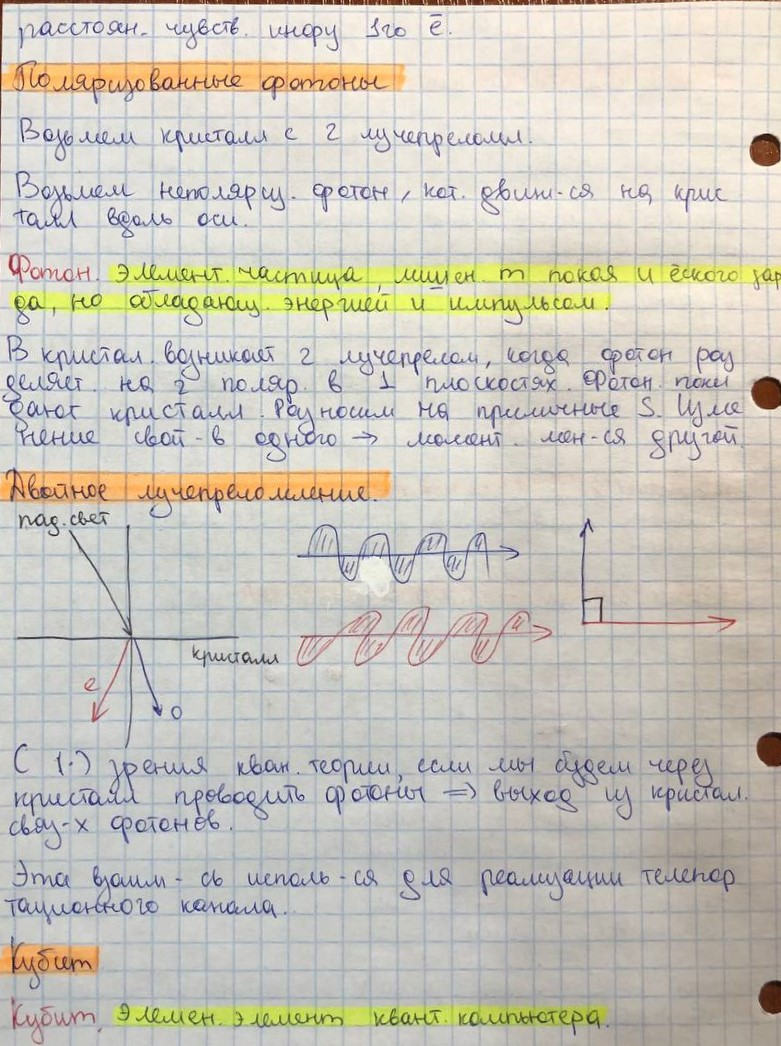 расстоян. чувств. инфру 1го ē.
Поляризованные фотоны
Возьмем кристалл с 2 лучепреломл.
Возьмем неполяриз. фотон, кот. движ-ся на крис
талл вдоль оси.
Фотон. Элемент. частица, лишен. m покоя и ēского зар
да, но обладающ. энергией и импульсом.
В кристал. возникает 2 лучепрелом, когда фотон раз
деляет. на 2 поляр. в ⊥ плоскостях. Фотон. поки
дают кристалл. Разносим на приличные S. Изме
нение свой-в одного → момент. мен-ся другой.
Двойное лучепреломление.
пад. свет
кристалл
e
o
С (·) зрения кван. теории, если мы будем через
кристалл проводить фотоны => выход из кристал.
связ-х фотонов.
Эта взаим-сь исполь-ся для реализации телепор
тационного канала.
Кубит
Кубит. Элемен. элемент квант. компьютера.